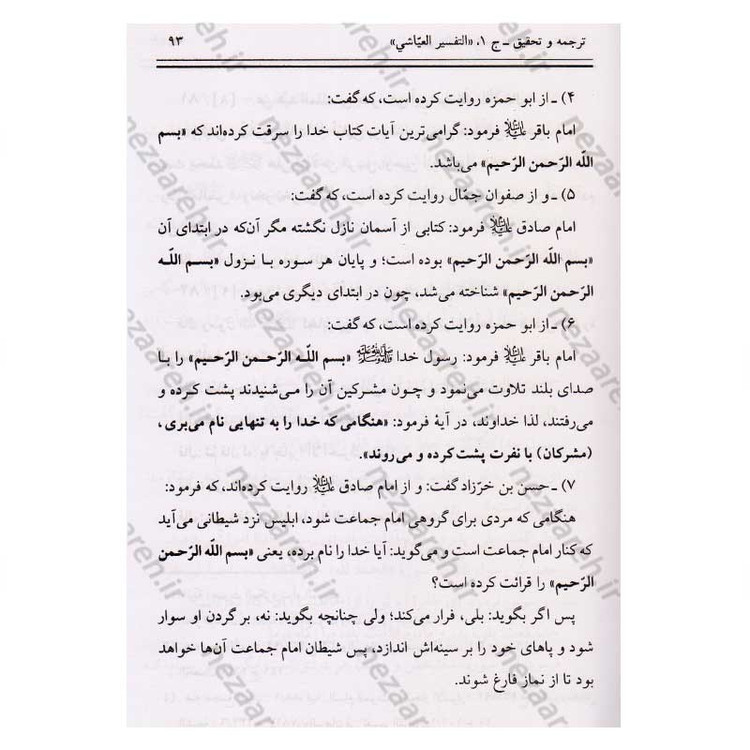 ترجمه و تحقیق ـ ج ۱، «التفسیر العیّاشي» ۹۳
۴) ـ از ابو حمزه روایت کرده است، که گفت:
امام باقر علیه‌السلام فرمود: گرامی‌ترین آیات کتاب خدا را سرقت کرده‌اند که «بسم
اللّه الرّحمن الرّحیم» می‌باشد.
۵) ـ و از صفوان جمّال روایت کرده است، که گفت:
امام صادق علیه‌السلام فرمود: کتابی از آسمان نازل نگشته مگر آن‌که در ابتدای آن
«بسم اللّه الرّحمن الرّحیم» بوده است؛ و پایان هر سوره با نزول «بسم اللّه
الرّحمن الرّحیم» شناخته می‌شد، چون در ابتدای دیگری می‌بود.
۶) ـ از ابو حمزه روایت کرده است، که گفت:
امام باقر علیه‌السلام فرمود: رسول خدا ﷺ «بسم اللّه الرّحمن الرّحیم» را با
صدای بلند تلاوت می‌نمود و چون مشرکین آن را می‌شنیدند پشت کرده و
می‌رفتند، لذا خداوند، در آیهٔ فرمود: «هنگامی که خدا را به تنهایی نام می‌بری،
(مشرکان) با نفرت پشت کرده و می‌روند».
۷) ـ حسن بن خرّزاد گفت: و از امام صادق علیه‌السلام روایت کرده‌اند، که فرمود:
هنگامی که مردی برای گروهی امام جماعت شود، ابلیس نزد شیطانی می‌آید
که کنار امام جماعت است و می‌گوید: آیا خدا را نام برده، یعنی «بسم اللّه الرّحمن
الرّحیم» را قرائت کرده است؟
پس اگر بگوید: بلی، فرار می‌کند؛ ولی چنانچه بگوید: نه، بر گردن او سوار
شود و پاهای خود را بر سینه‌اش اندازد، پس شیطان امام جماعت آن‌ها خواهد
بود تا از نماز فارغ شوند.
nezaareh.ir